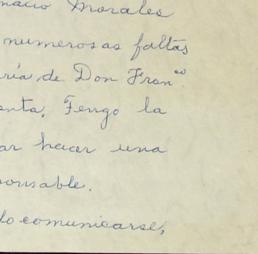 nacio Morales
numerosas faltas
ría de Don Fran.co
enta. Tengo la
ar hacer una
ponsable.
do comunicarse,